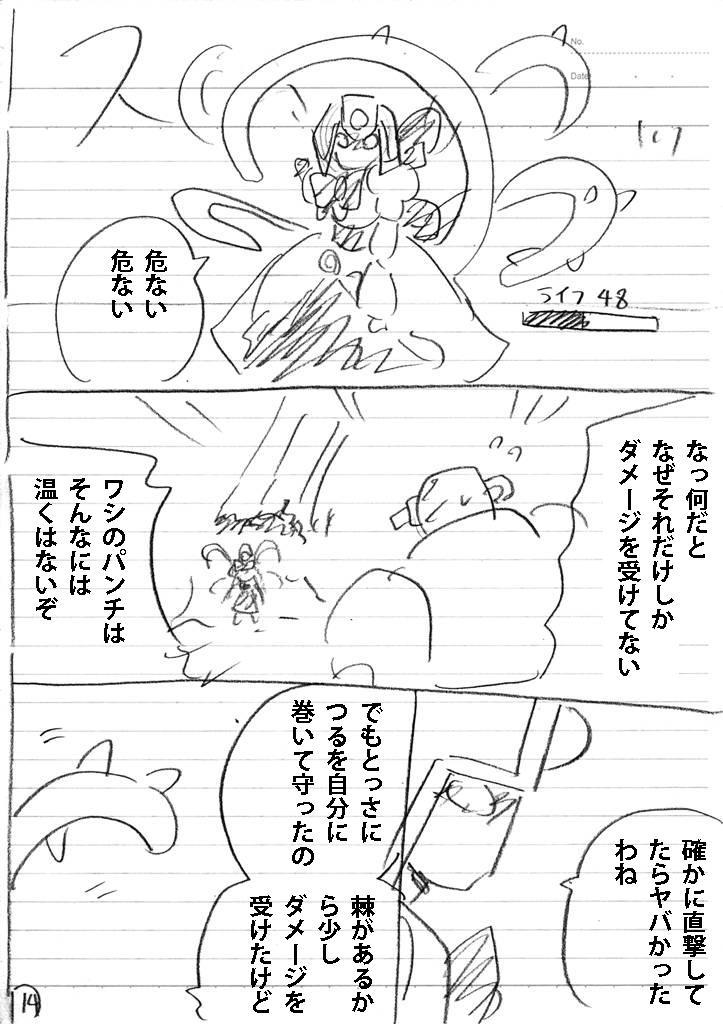 No.
Date
ス
ライフ 48
危ない
危ない
なっ何だと
なぜそれだけしか
ダメージを受けてない
ワシのパンチは
そんなには
温くはないぞ
確かに直撃して
たらヤバかった
わね
でもとっさに
つるを自分に
巻いて守ったの
棘があるか
ら少し
ダメージを
受けたけど
14